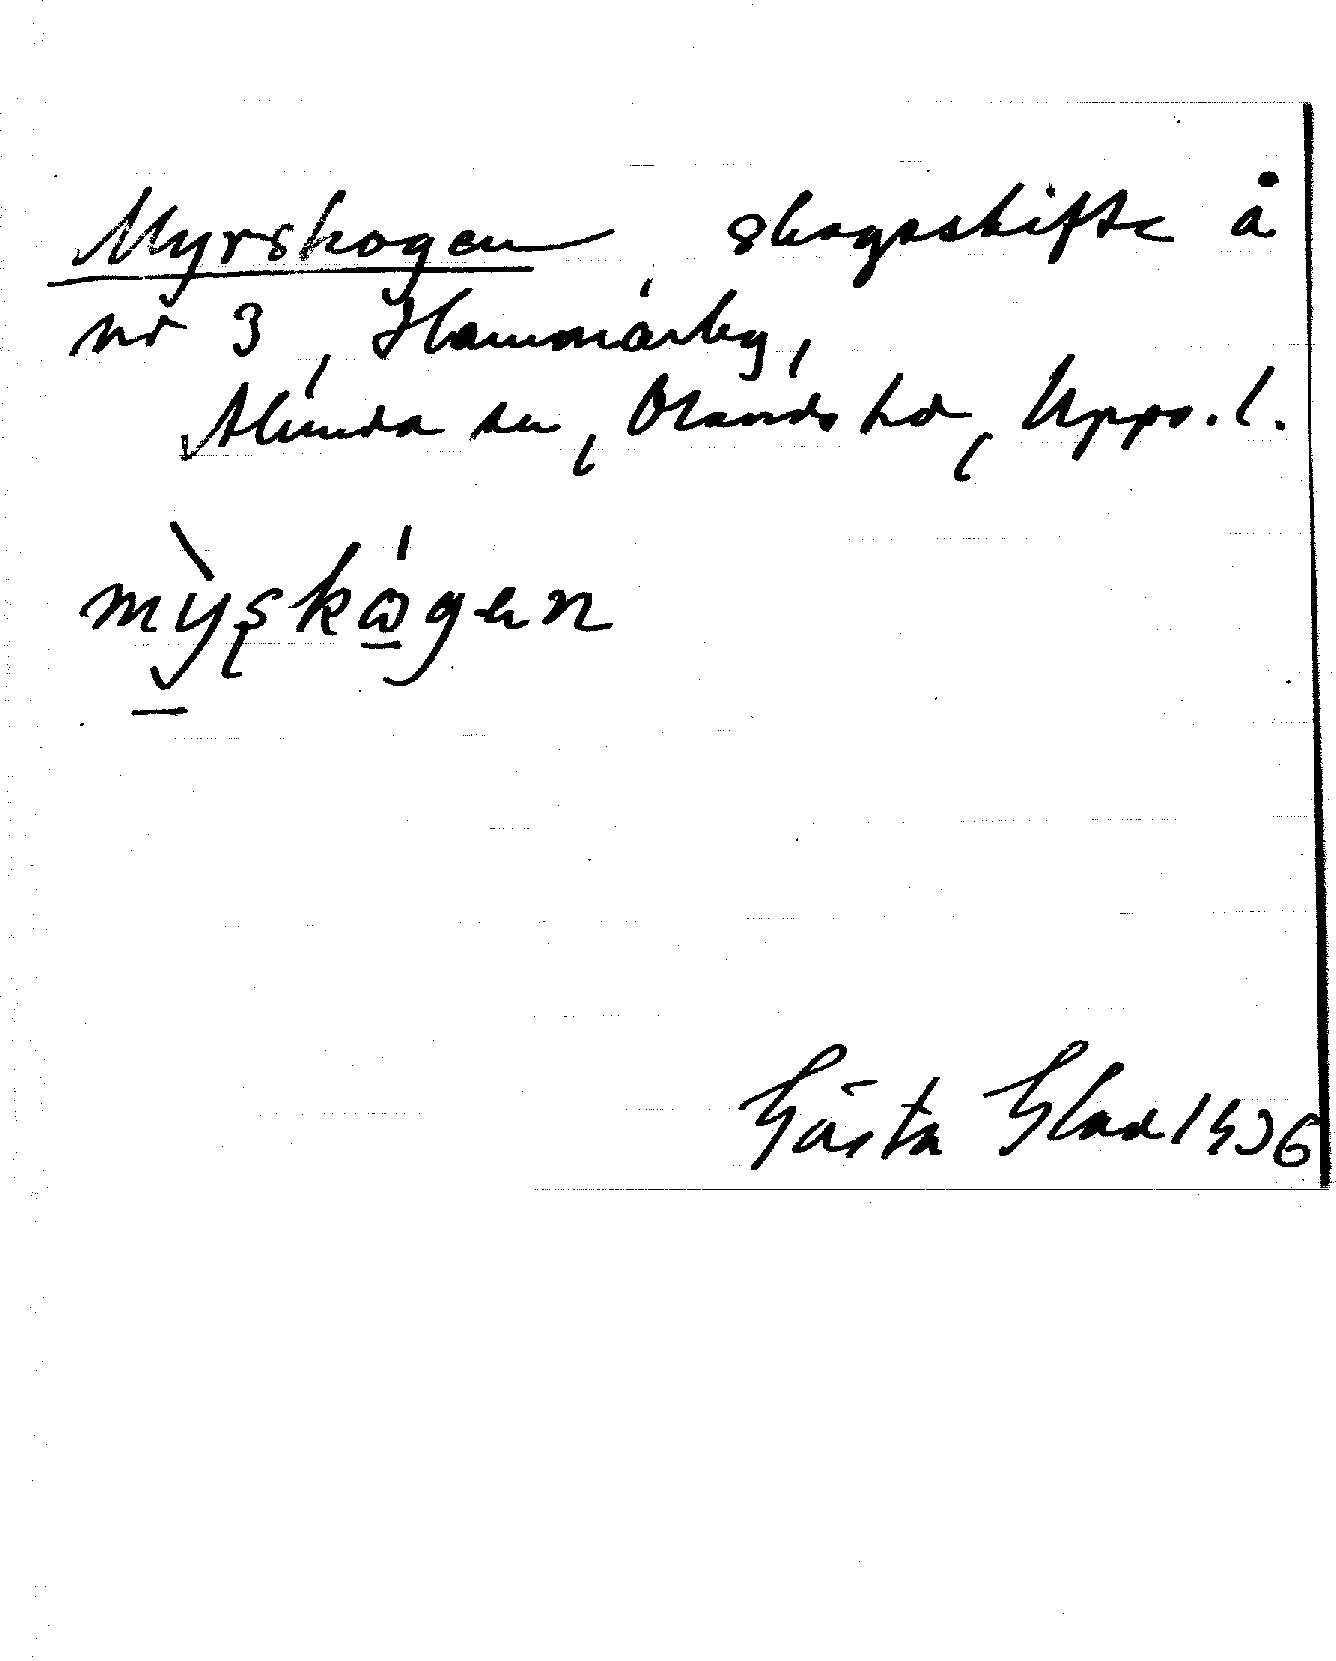 Myrskogen, skogsskifte å
nr 3, Hammarby,
Alunda sn, Olands hd, Upps. l.
mỳʂkώgen
Gösta Glad 1936